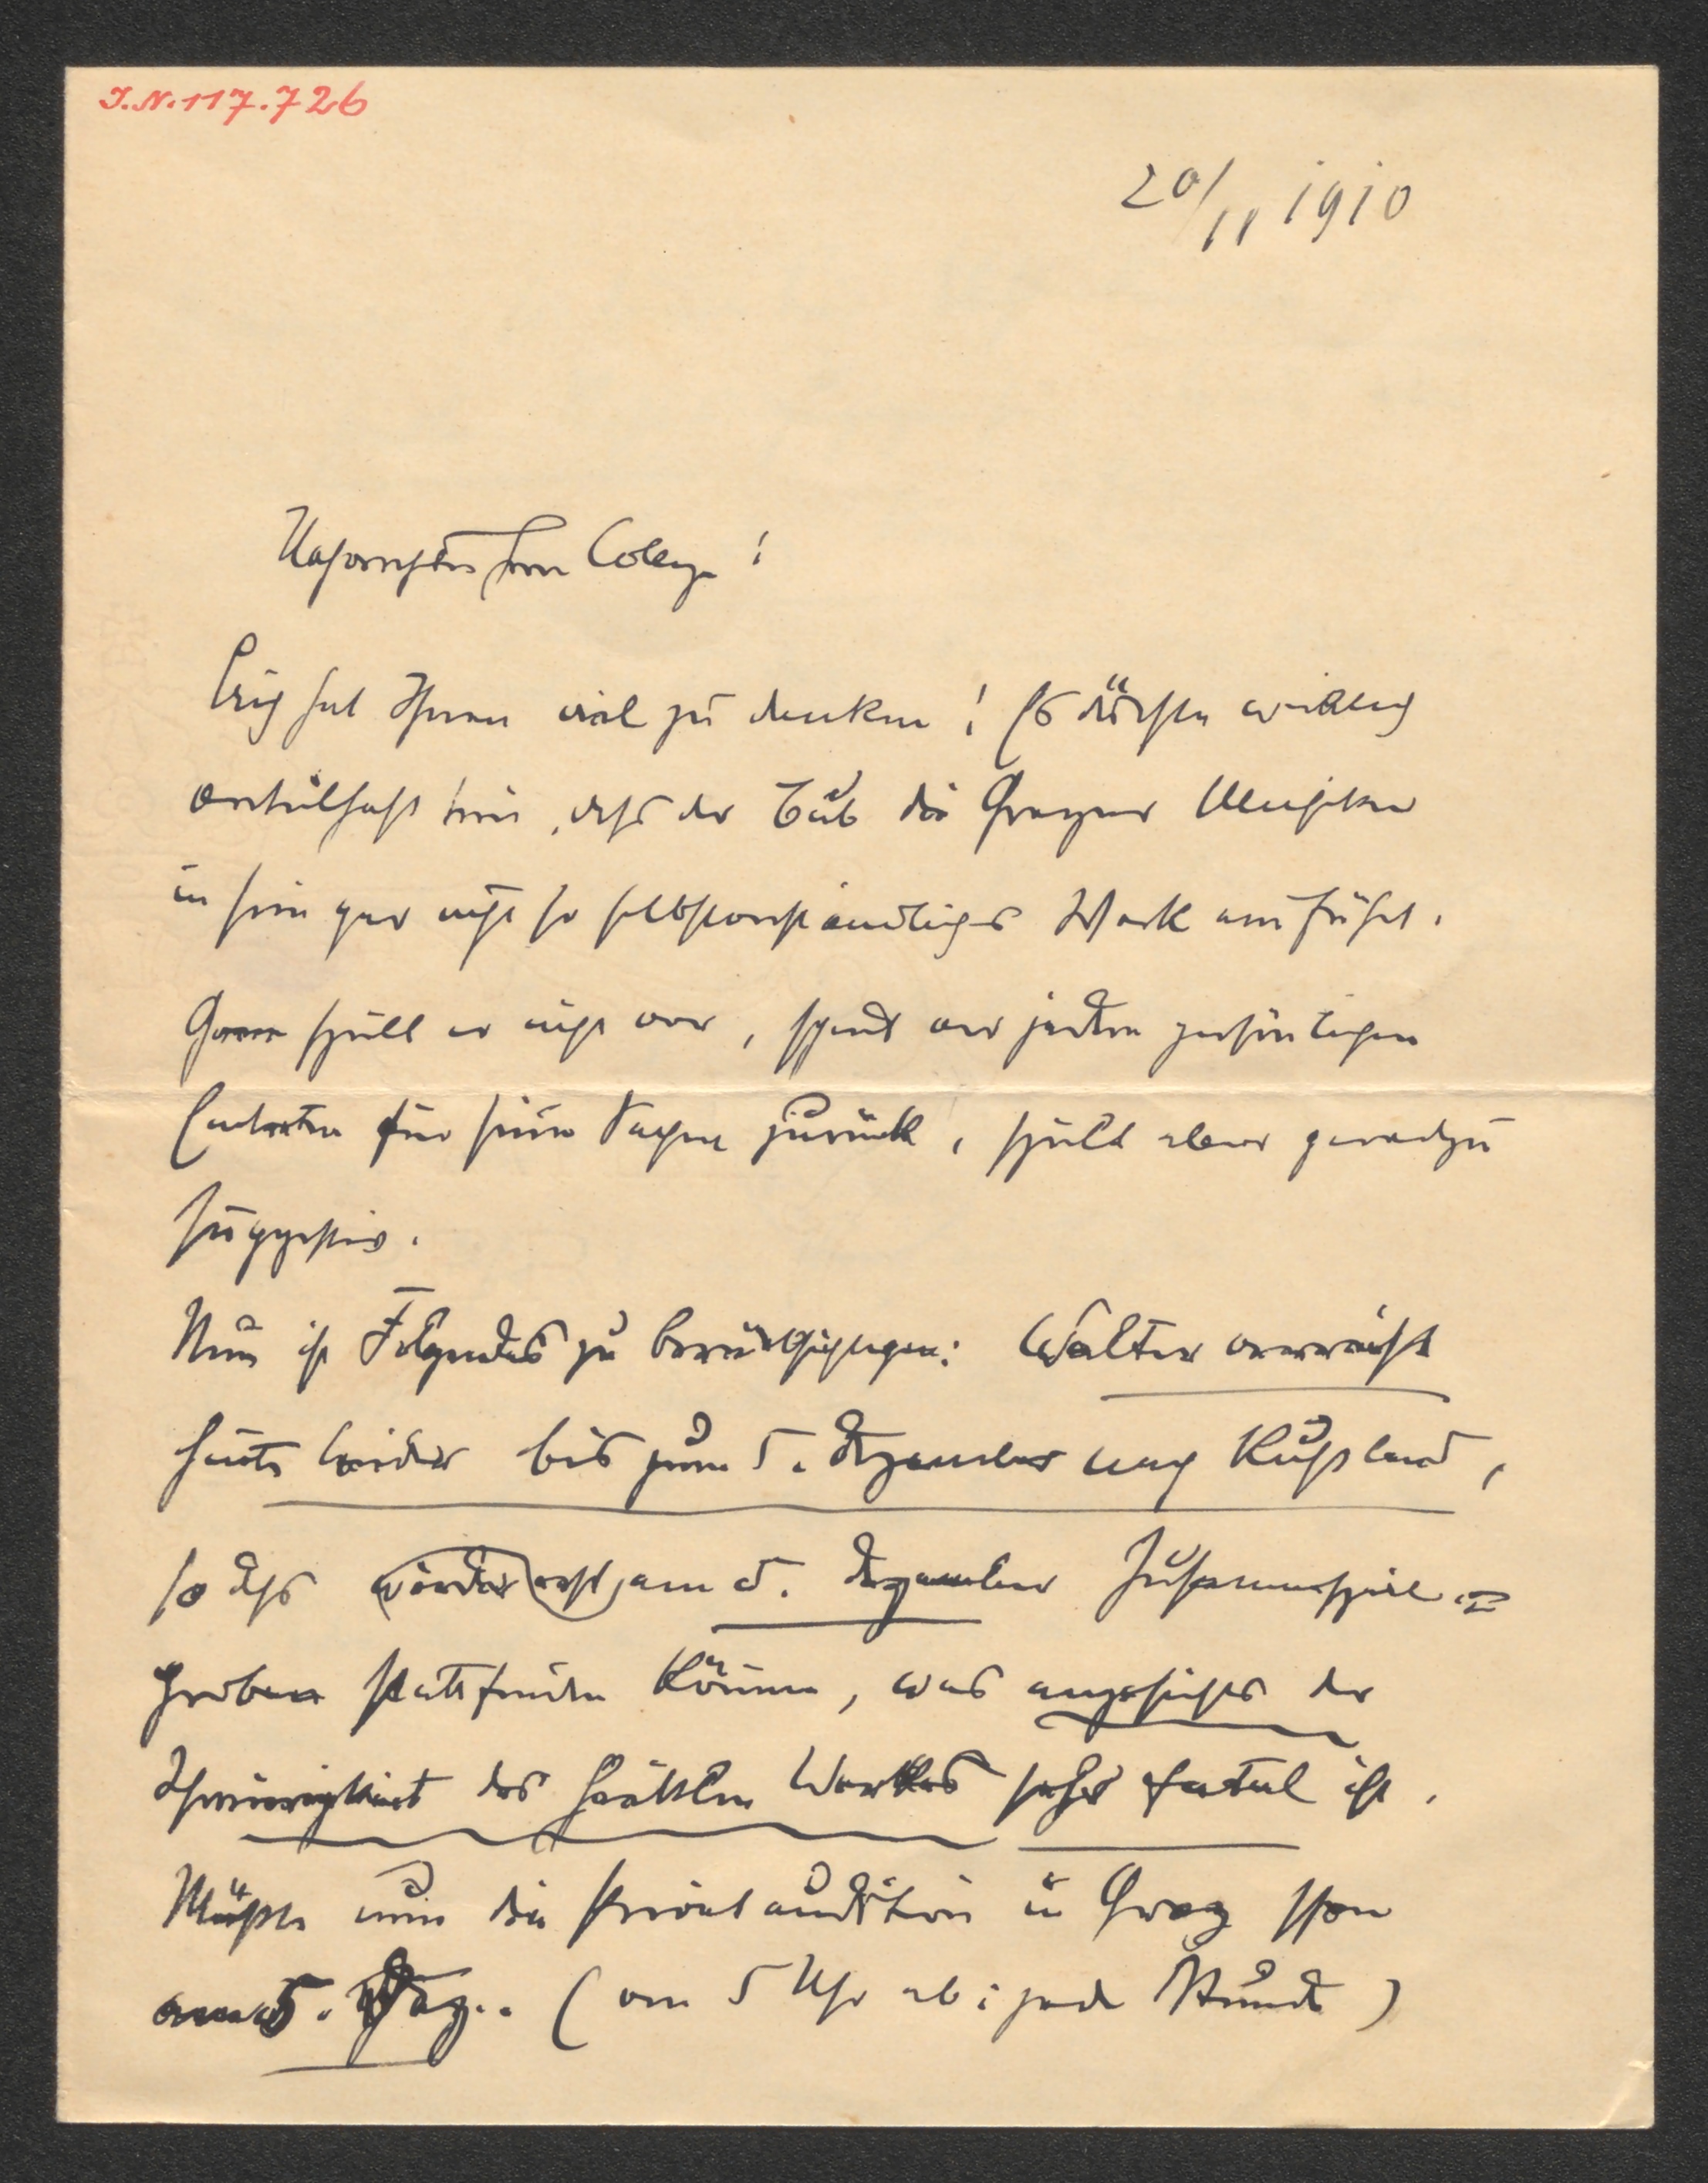 I.N. 117.726
20/11 1910
Hochverehrter Herr College!
Erich hat Ihnen viel zu danken! Es dürfte wirklich
vorteilhaft sein, dass der Bub die Grazer Musiker
in sein gar nicht so selbstverständliches Werk einführt.
Gerne spielt er nicht vor, schent vor jedem
für seine Sachen zurück, spielt aber geradezu
suggestiv.
Nun ist Folgendes zu berücksichtigen: Walter verreist
heute wieder bis zum 5. Dezember nach Russland,
so dass wieder erst am 5. Dezember Zusammenspiel-
proben stattfinden können, was angesichts der
Schwierigkeit des heiklen Werkes sehr fatal ist.
Müsste nun die Privataudition in Graz schon
am 5. Dez.. (von 5 Uhr ab: jede Stunde)